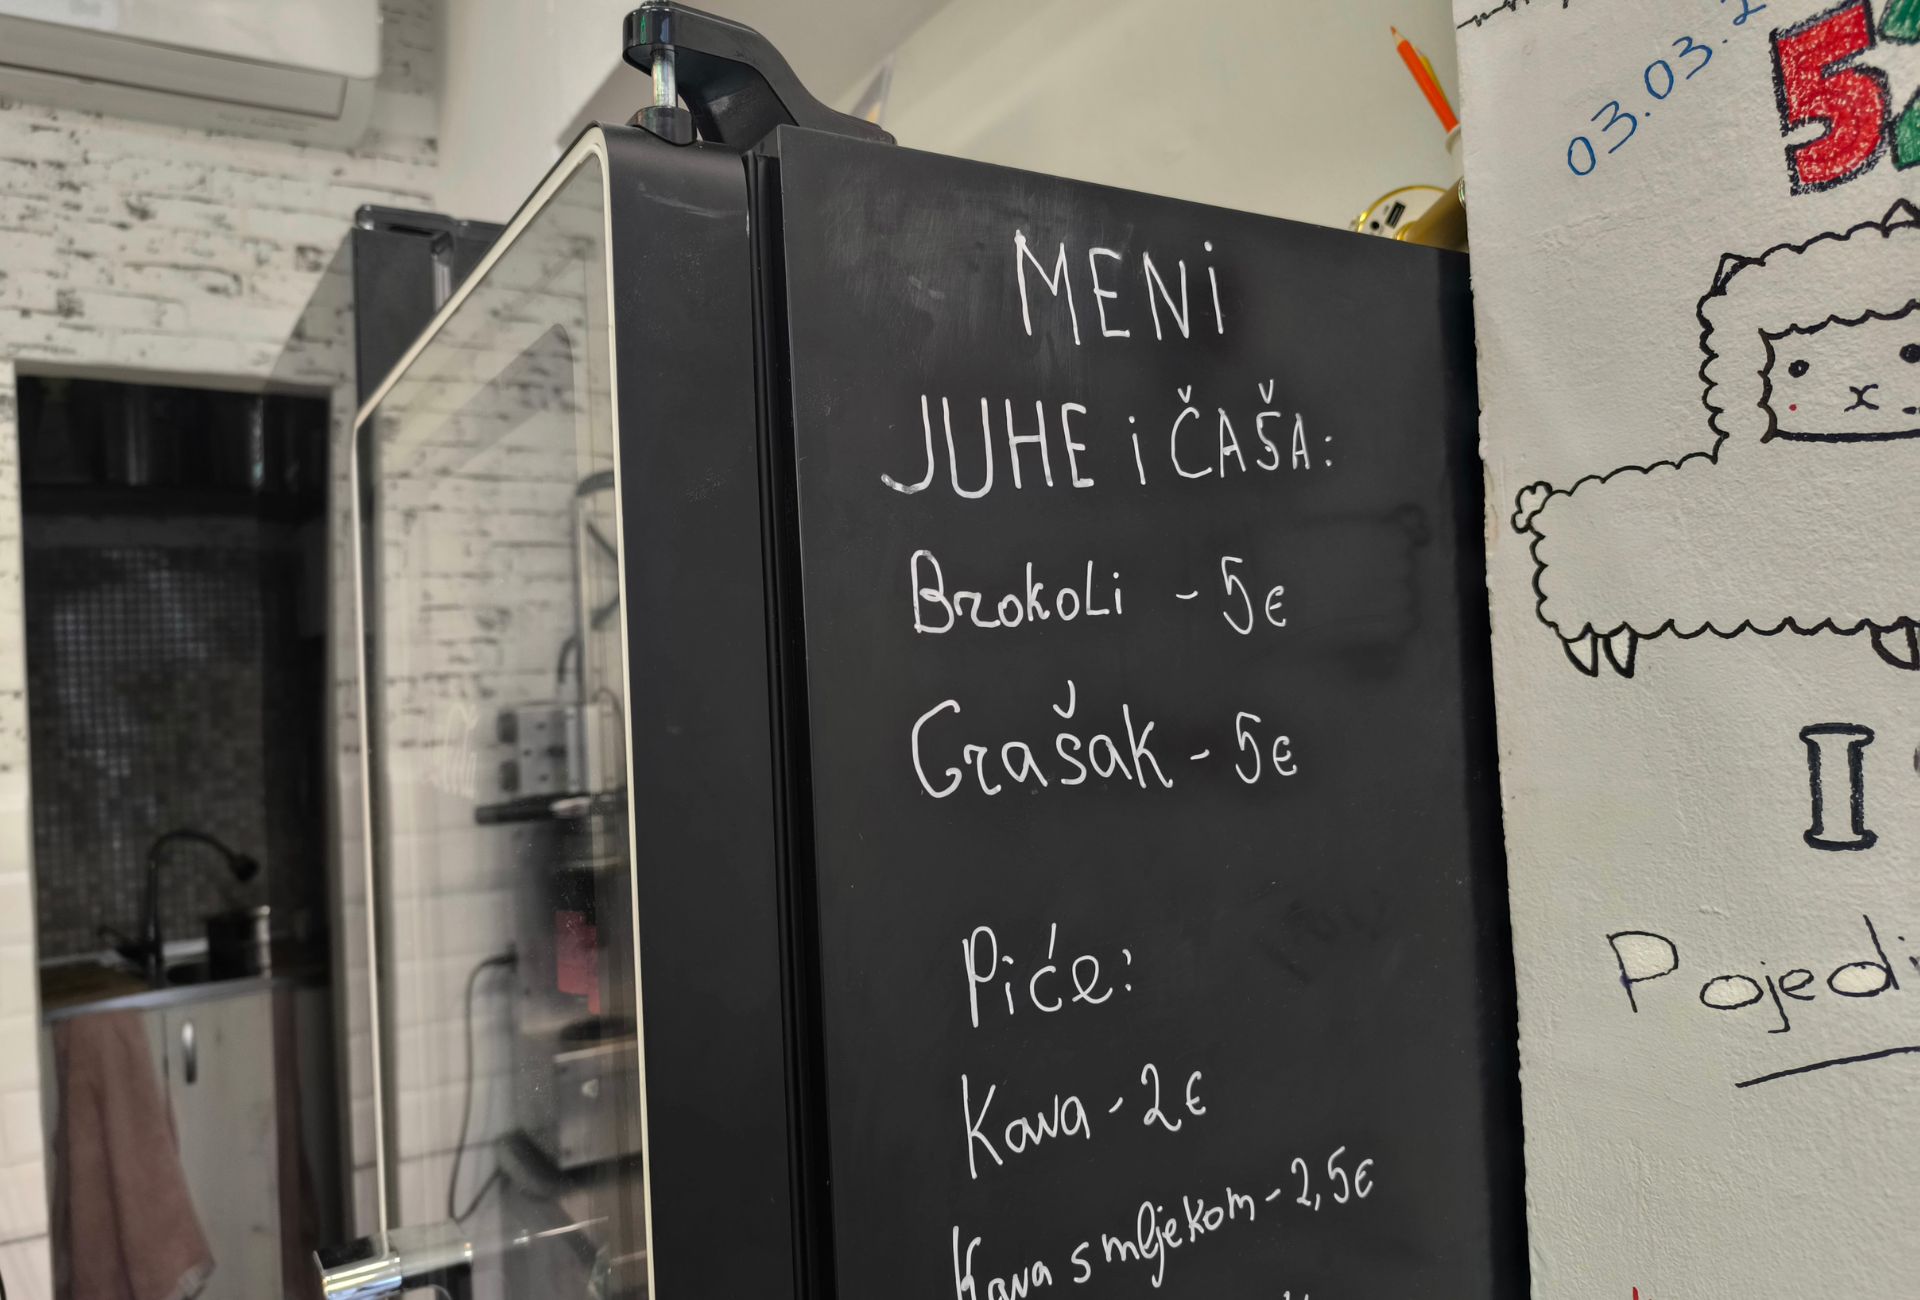 MENi
JUHE i ČAŠA:
BrokoLi - 5€
Grašak - 5€
Piće:
Kava - 2€
Kava s mljekom - 2,5€
03.03.2
5
II
Pojedi